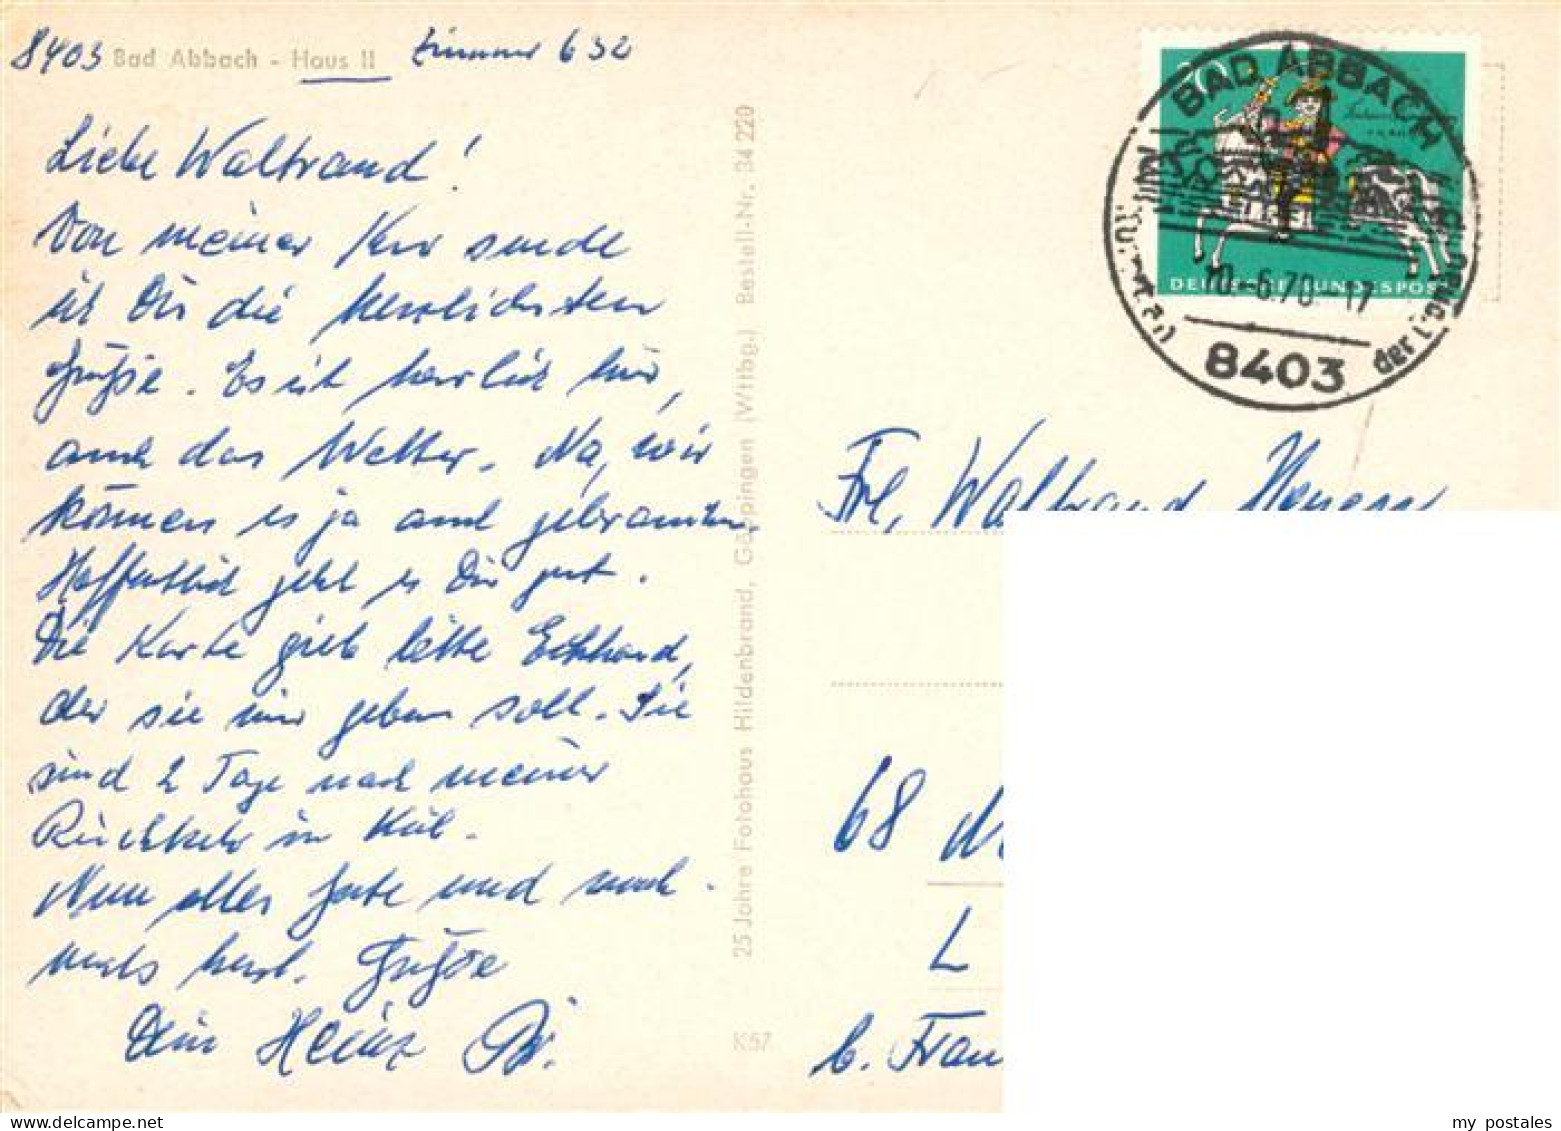 8403 Bad Abbach - Haus II Zimmer 632
Liebe Waltraud!
Von meiner Kur sende
ich Dir die herzlichsten
Grüße. Es ist herrlich hier,
auch das Wetter. Na, wir
können es ja auch gebrauchen.
Hoffentlich geht es Dir gut.
Die Karte gieb bitte Eckhard,
der sie mir geben soll. Sie
sind 2 Tage nach meiner
Rückkehr in
Nun alles Gute und noch-
mals herzl. Grüße
Dein Heinz
25 Jahre Fotohaus Hildenbrand, Göppingen (Wttbg.) Bestell-Nr. 34 220
K67
BAD ABBACH
10.-6.70.-17
8403
DEUTSCHE BUNDESPOST
Frl. Waltraud
68
L
b. Frau
my postales